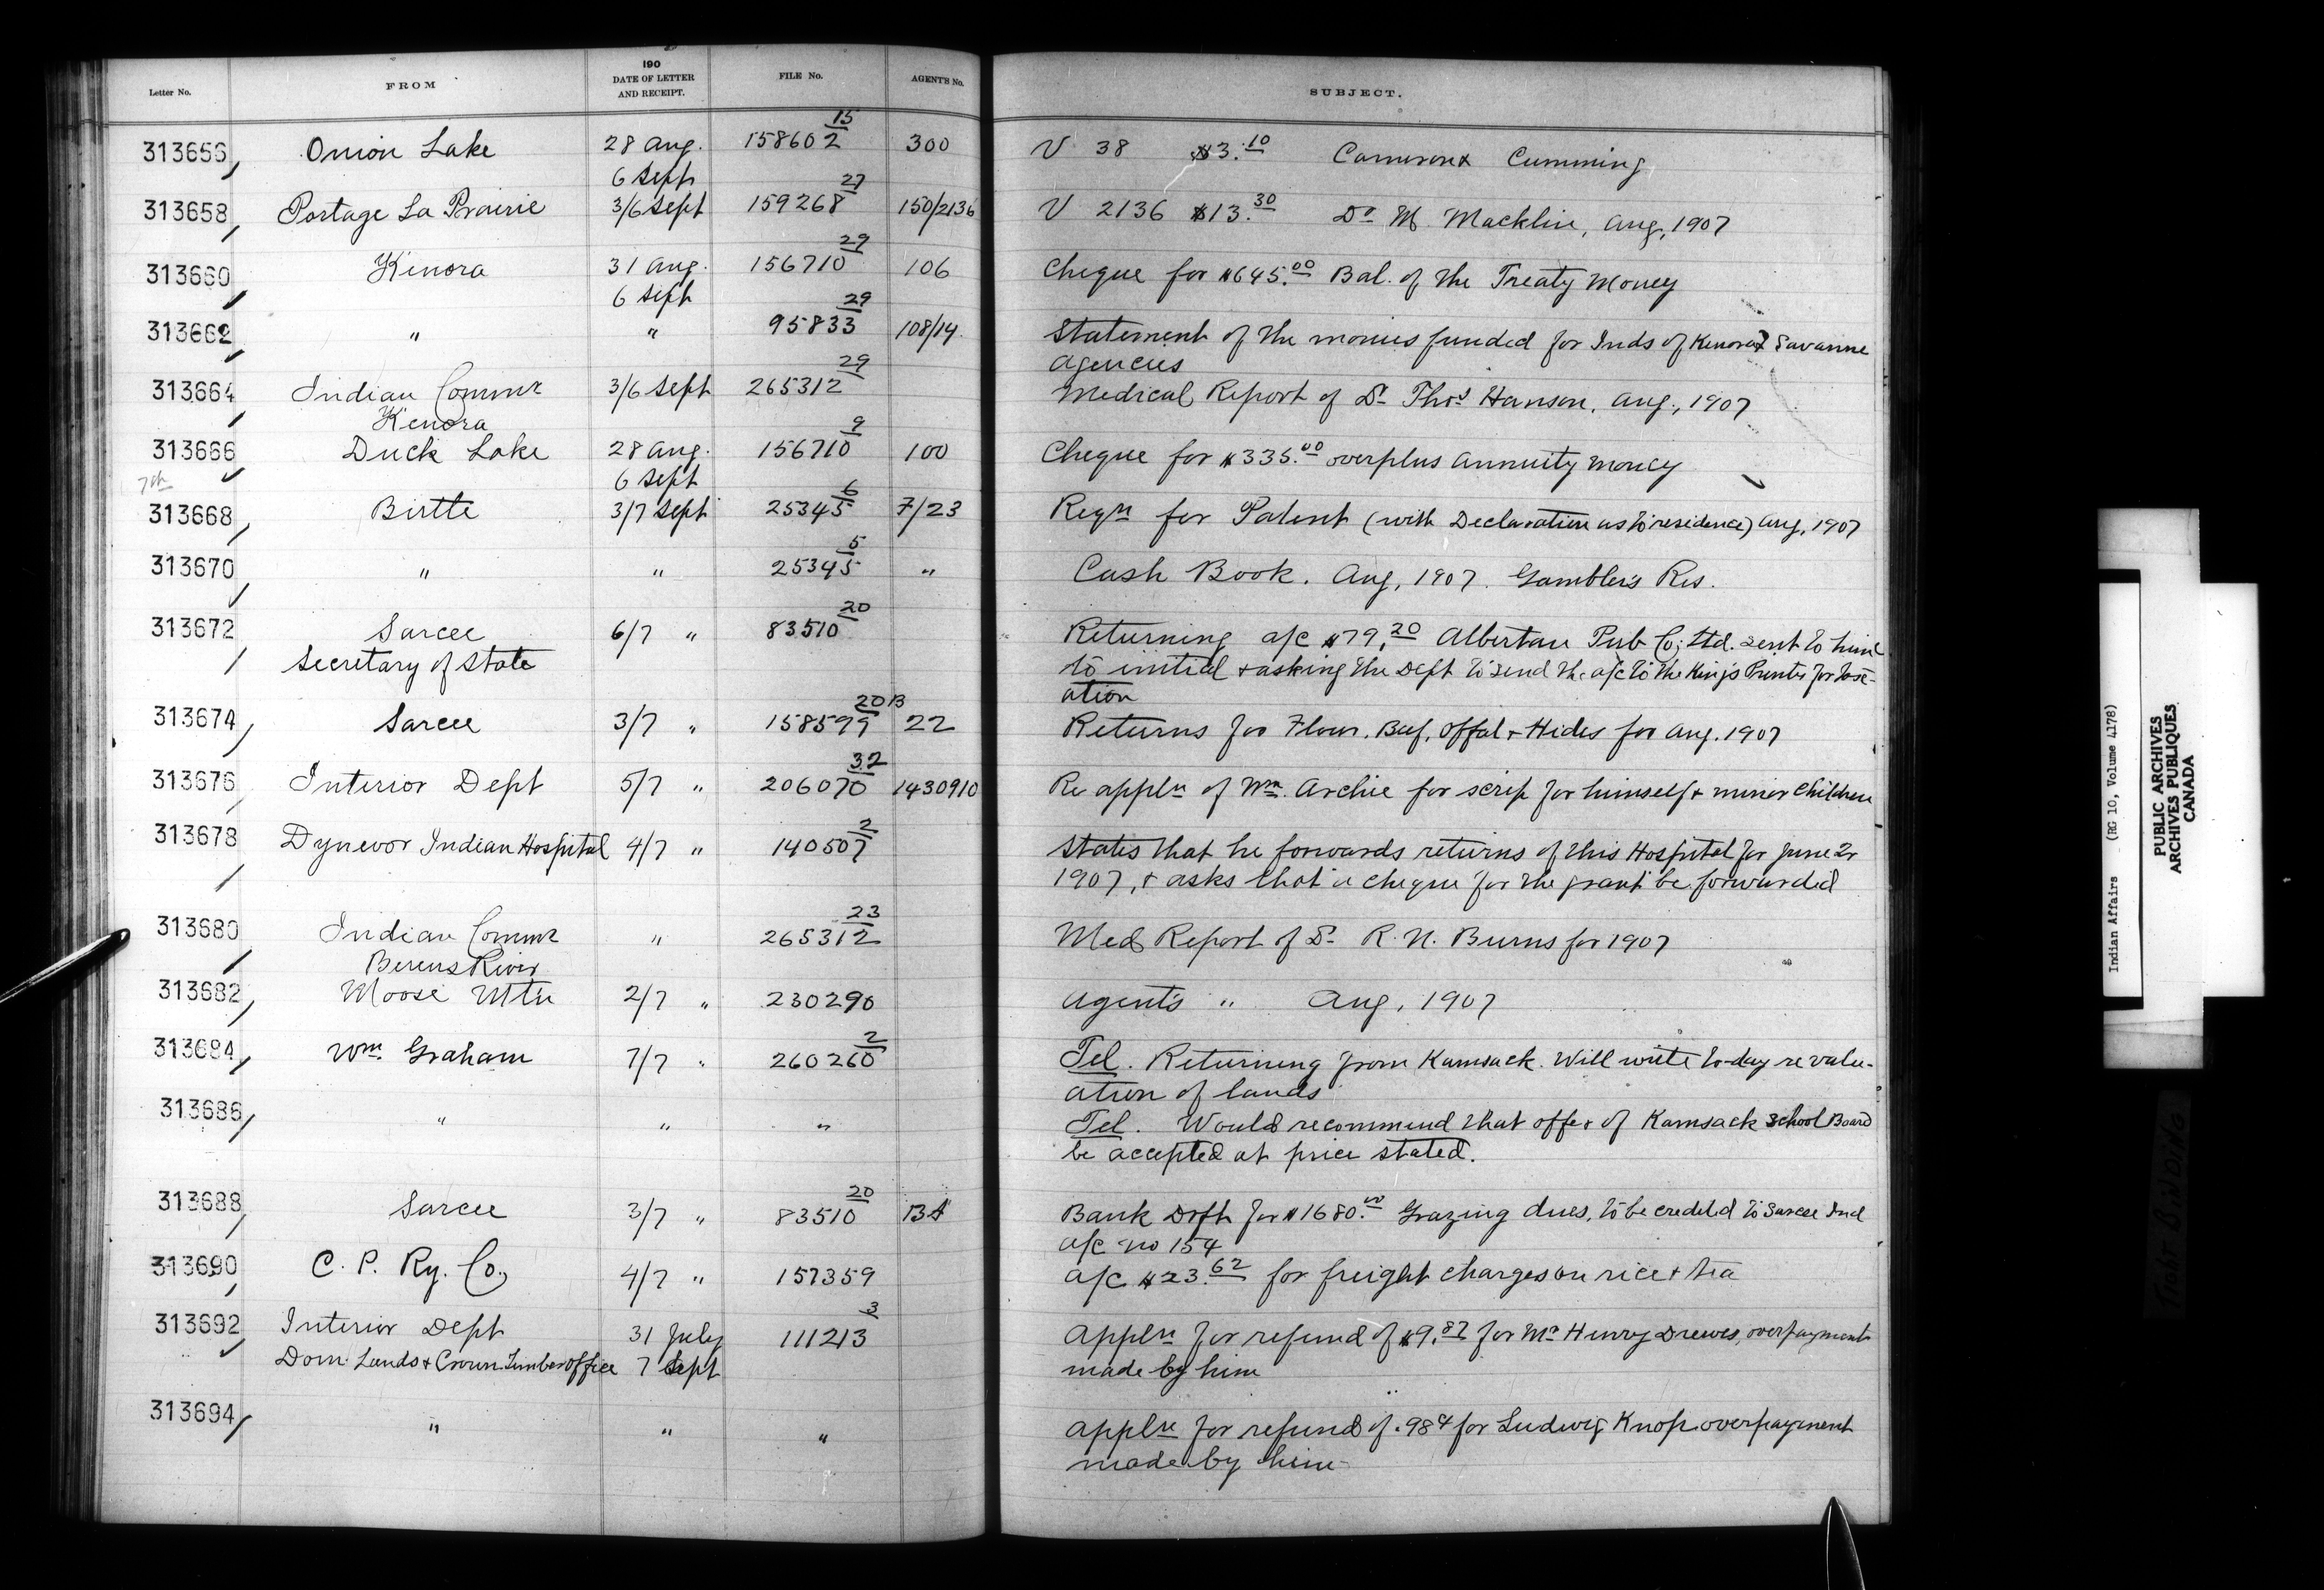 Letter No. FROM 190 DATE OF LETTER AND RECEIPT. FILE No. AGENT'S No. SUBJECT.
313656 Onion Lake 28 Aug. 6 Sept 158602 15 300 V 38 $3.10 Cameron & Cumming
313658 Portage La Prairie 3/6 Sept 159268 27 150/2136 V 2136 $13.30 Dr M Macklin, Aug, 1907
313660 Kenora 31 Aug. 6 Sept 156710 29 106 Cheque for $645.00 Bal. of the Treaty Money
313662 " " 95833 29 108/14 Statement of the monies funded for Inds of Kenora & Savanne
agencies
313664 Indian Commr 3/6 Sept 265312 29 Medical Report of Dr Thos Hanson, Aug., 1907
Kenora
313666 Duck Lake 28 Aug. 6 Sept 156710 9 100 Cheque for $335.00 overplus annuity money
7th
313668 Birtle 3/7 Sept 25345 6 7/23 Reqn for Patent (with Declaration as to residence) Aug, 1907
313670 " " 25345 5 " Cash Book. Aug, 1907. Gambler's Res.
313672 Sarcee 6/7 " 83510 20 Returning a/c $79.20 Albertan Pub Co; Ltd. sent to him
Secretary of State to initial & asking the Dept to send the a/c to the King's Printer for
ation
313674 Sarcee 3/7 " 158599 20B 22 Returns for Flour, Beef, Offal & Hides for Aug. 1907
313676 Interior Dept 5/7 " 206070 32 1430910 Re appln of Wm. Archie for scrip for himself & minor children
313678 Dynevor Indian Hospital 4/7 " 140507 2 States that he forwards returns of this Hospital for June 2r
1907, & asks that a cheque for the grant be forwarded
313680 Indian Commr " 265312 23 Med Report of Dr R. N. Burns for 1907
Berens River
313682 Moose Mtn 2/7 " 230290 Agent's " Aug, 1907
313684 Wm. Graham 7/7 " 260260 2 Tel. Returning from Kamsack. Will write to-day re valu-
ation of lands
313686 " " " Tel. Would recommend that offer of Kamsack School Board
be accepted at price stated.
313688 Sarcee 3/7 " 83510 20 Bank Drft for $1680.00 Grazing dues, to be credited to Sarcee Ind
a/c no 154
313690 C. P. Ry. Co. 4/7 " 157359 a/c $23.62 for freight charges on rice & tea
313692 Interior Dept 31 July 111213 3 Appln for refund of $9.87 for Mr Henry Drewes, overpayment
Dom. Lands & Crown Timber Office 7 Sept made by him
313694 " " " Appln for refund of .98¢ for Ludwig Knop overpayment
made by him
Indian Affairs (RG 10, Volume 4178)
PUBLIC ARCHIVES
ARCHIVES PUBLIQUES
CANADA
TIGHT BINDING